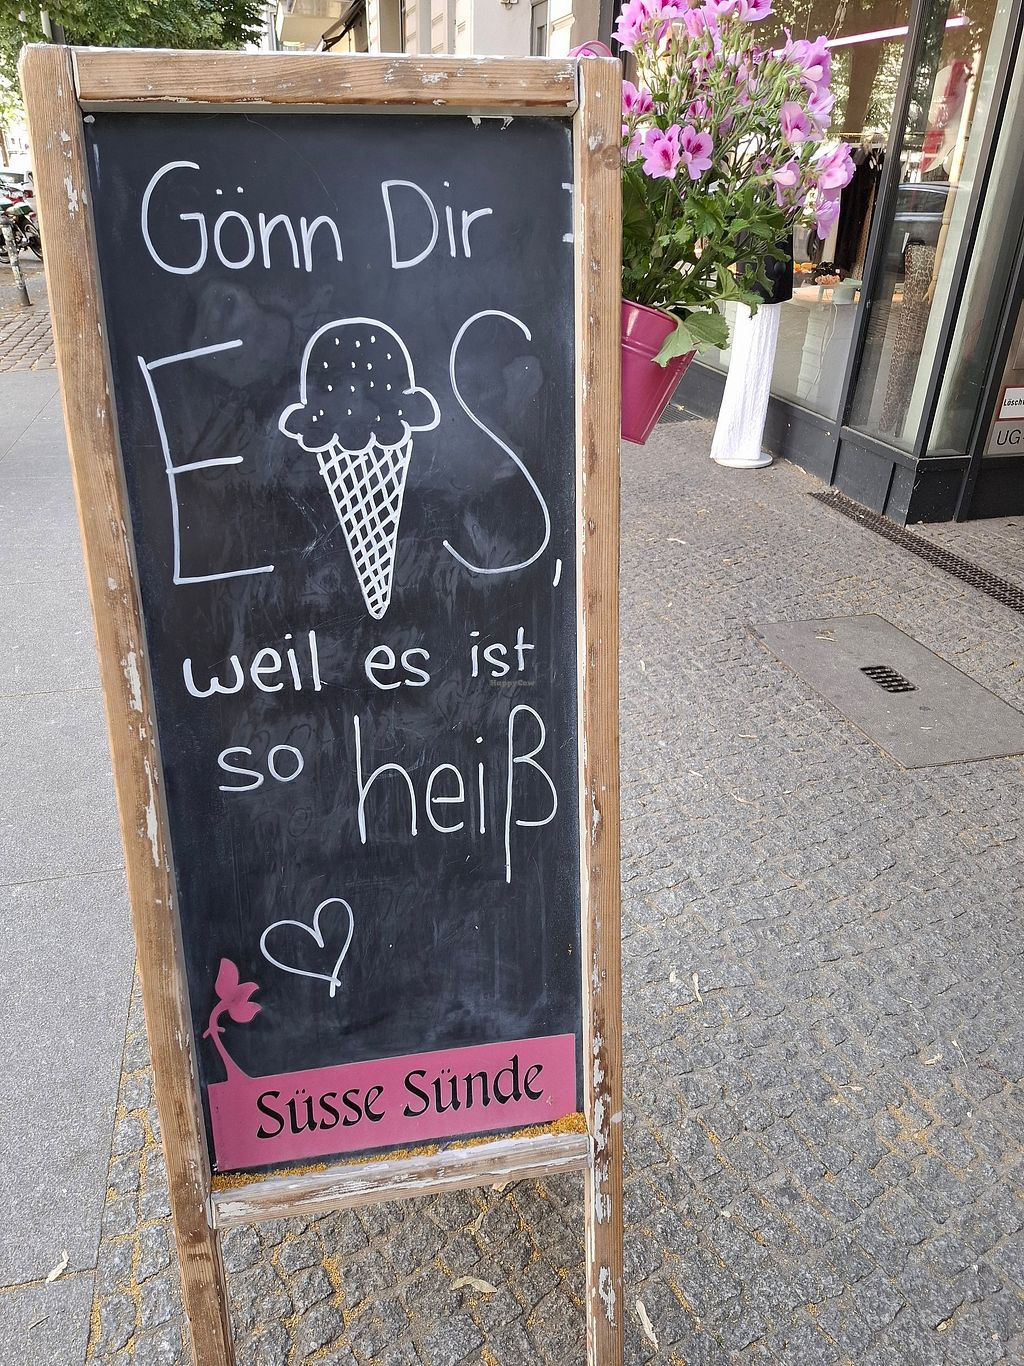 Gönn Dir
EIS,
weil es ist
so heiß
Süsse Sünde
HappyCow
UG